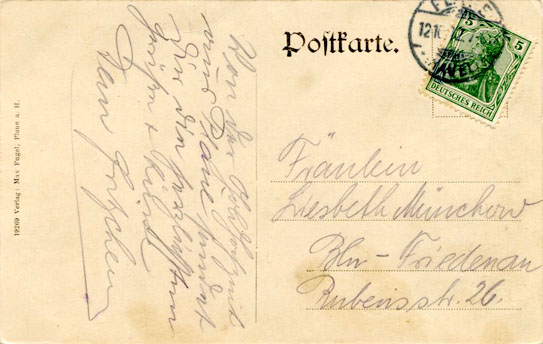 Postkarte.
5 5
DEUTSCHES REICH
Fräulein
Liesbeth Münchow
Bln-Friedenau
Rubensstr. 26.
Von der
und
Dir die herzlichsten
Grüße & Küsse
Dein Fritzchen
19269 Verlag: Max Fugel, Plaue a. H.